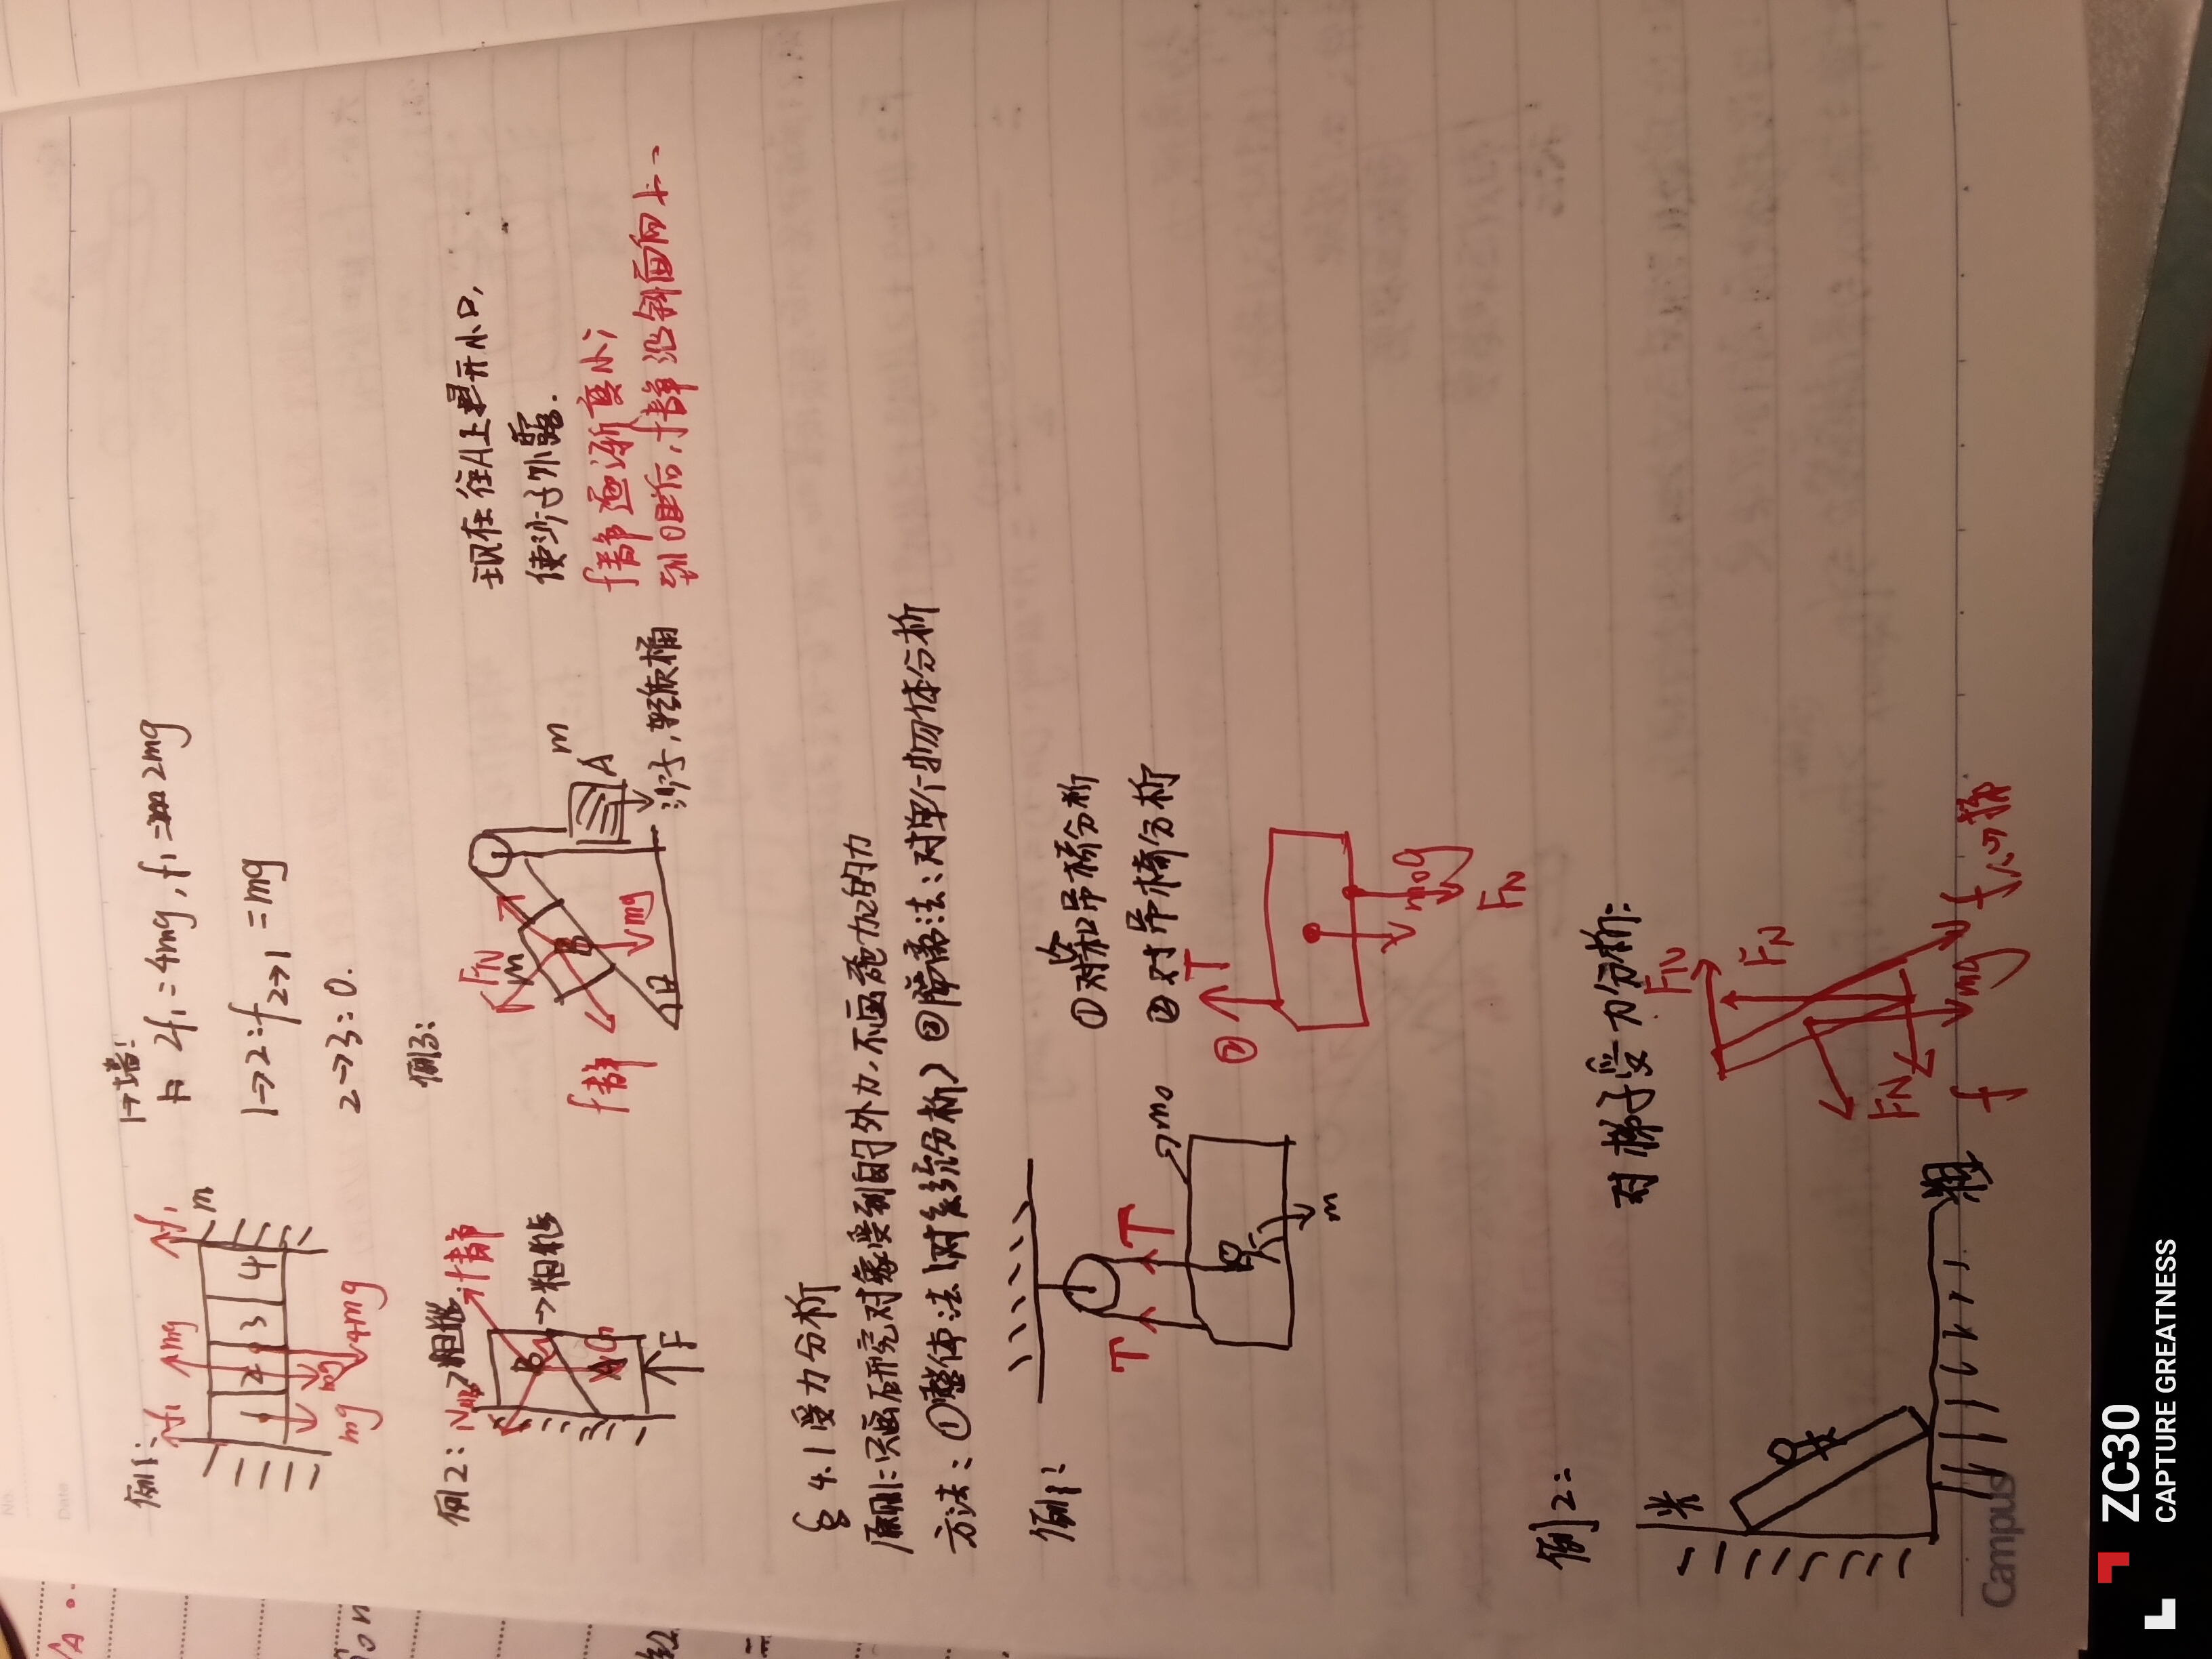 例1:
f₁
mg
f₁
m
1
2
3
4
mg
mg
4mg
1→墙:
2f₁=4mg, f₁=2mg
1→2: f₂→₁=mg
2→3: 0.
例2:
粗糙
f静
B
→粗糙
A
G
F
例3:
FN
m
B
mg
f静
θ
A
m
沙子, 轻质桶
现在往A上开小口,
使沙子外露.
f静逐渐变小;
到0时后, f静沿斜面向上、
§ 4.1 受力分析
原则:只画研究对象受到的外力,不画施加的力
方法: ①整体法(对系统分析) ②隔离法:对单个物体分析
例1:
T
T
m₀
m
①对人和吊椅分析
②对吊椅分析
②
T
m₀g
FN
例2:
光
粗
对梯子受力分析:
FN
FN
FN
mg
f
f人→梯
Campus
No.
Date
ZC30
CAPTURE GREATNESS